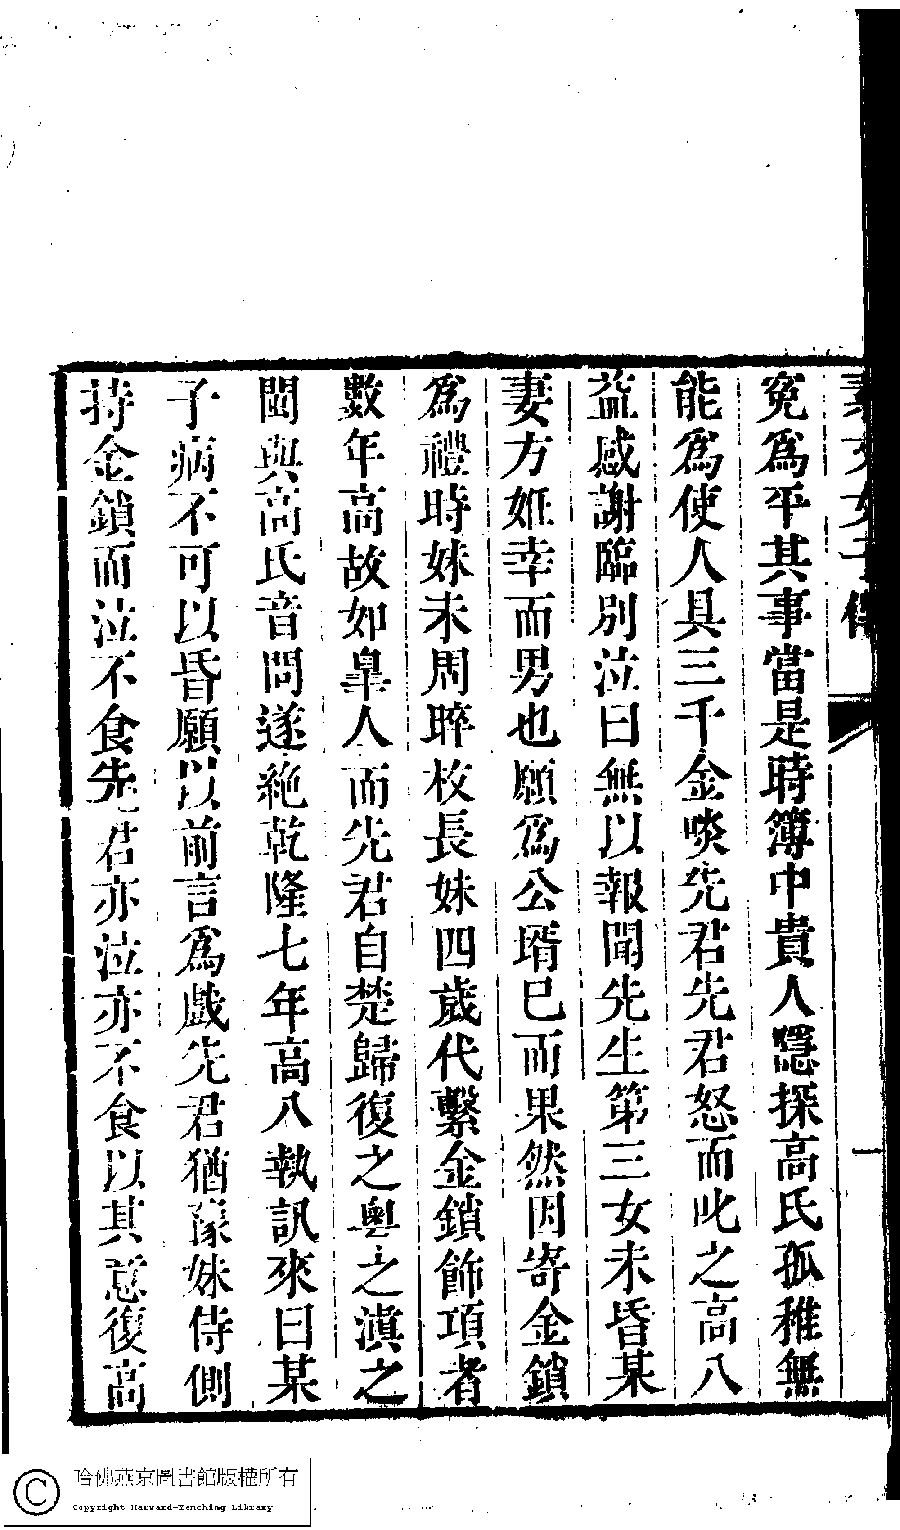 素文女子傳
一
冤爲平其事當是時簿中貴人隱探高氏孤稚無
能爲使人具三千金啖先君先君怒而叱之高八
益感謝臨別泣曰無以報聞先生第三女未昏某
妻方姙幸而男也願爲公壻已而果然因寄金鎖
爲禮時妹未周晬枚長妹四歲代繫金鎖飾項者
數年高故如臯人而先君自楚歸復之粵之滇之
閩與高氏音問遂絶乾隆七年高八執訊來曰某
子病不可以昏願以前言爲戲先君猶豫妹侍側
持金鎖而泣不食先君亦泣亦不食以其意復高
哈佛燕京圖書館版權所有
Copyright Harvard-Yenching Library